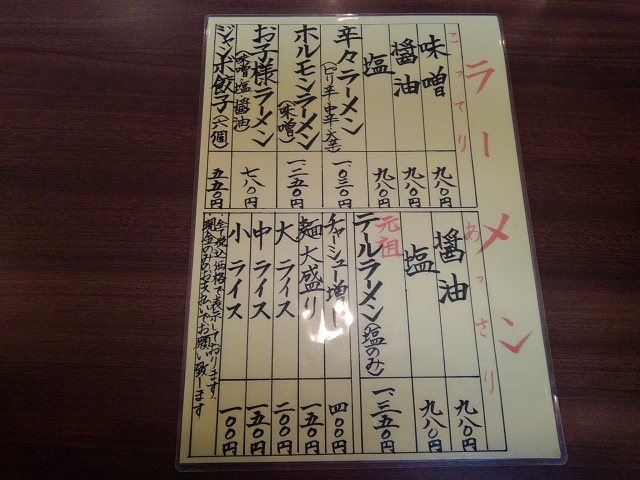 ラーメン
こってり
味噌 九八〇円
醤油 九八〇円
塩 九八〇円
辛々ラーメン(ピリ辛・中辛・大辛) 一、〇三〇円
ホルモンラーメン(味噌) 一、二五〇円
お子様ラーメン(味噌・塩・醤油) 七八〇円
ジャンボ餃子(六個) 五五〇円
あっさり
醤油 九八〇円
塩 九八〇円
元祖
テールラーメン(塩のみ) 一、三五〇円
チャーシュー増し 四〇〇円
麺大盛り 一五〇円
大ライス 二〇〇円
中ライス 一五〇円
小ライス 一〇〇円
全て税込価格で表示しております。
現金のみのお支払いでお願い致します